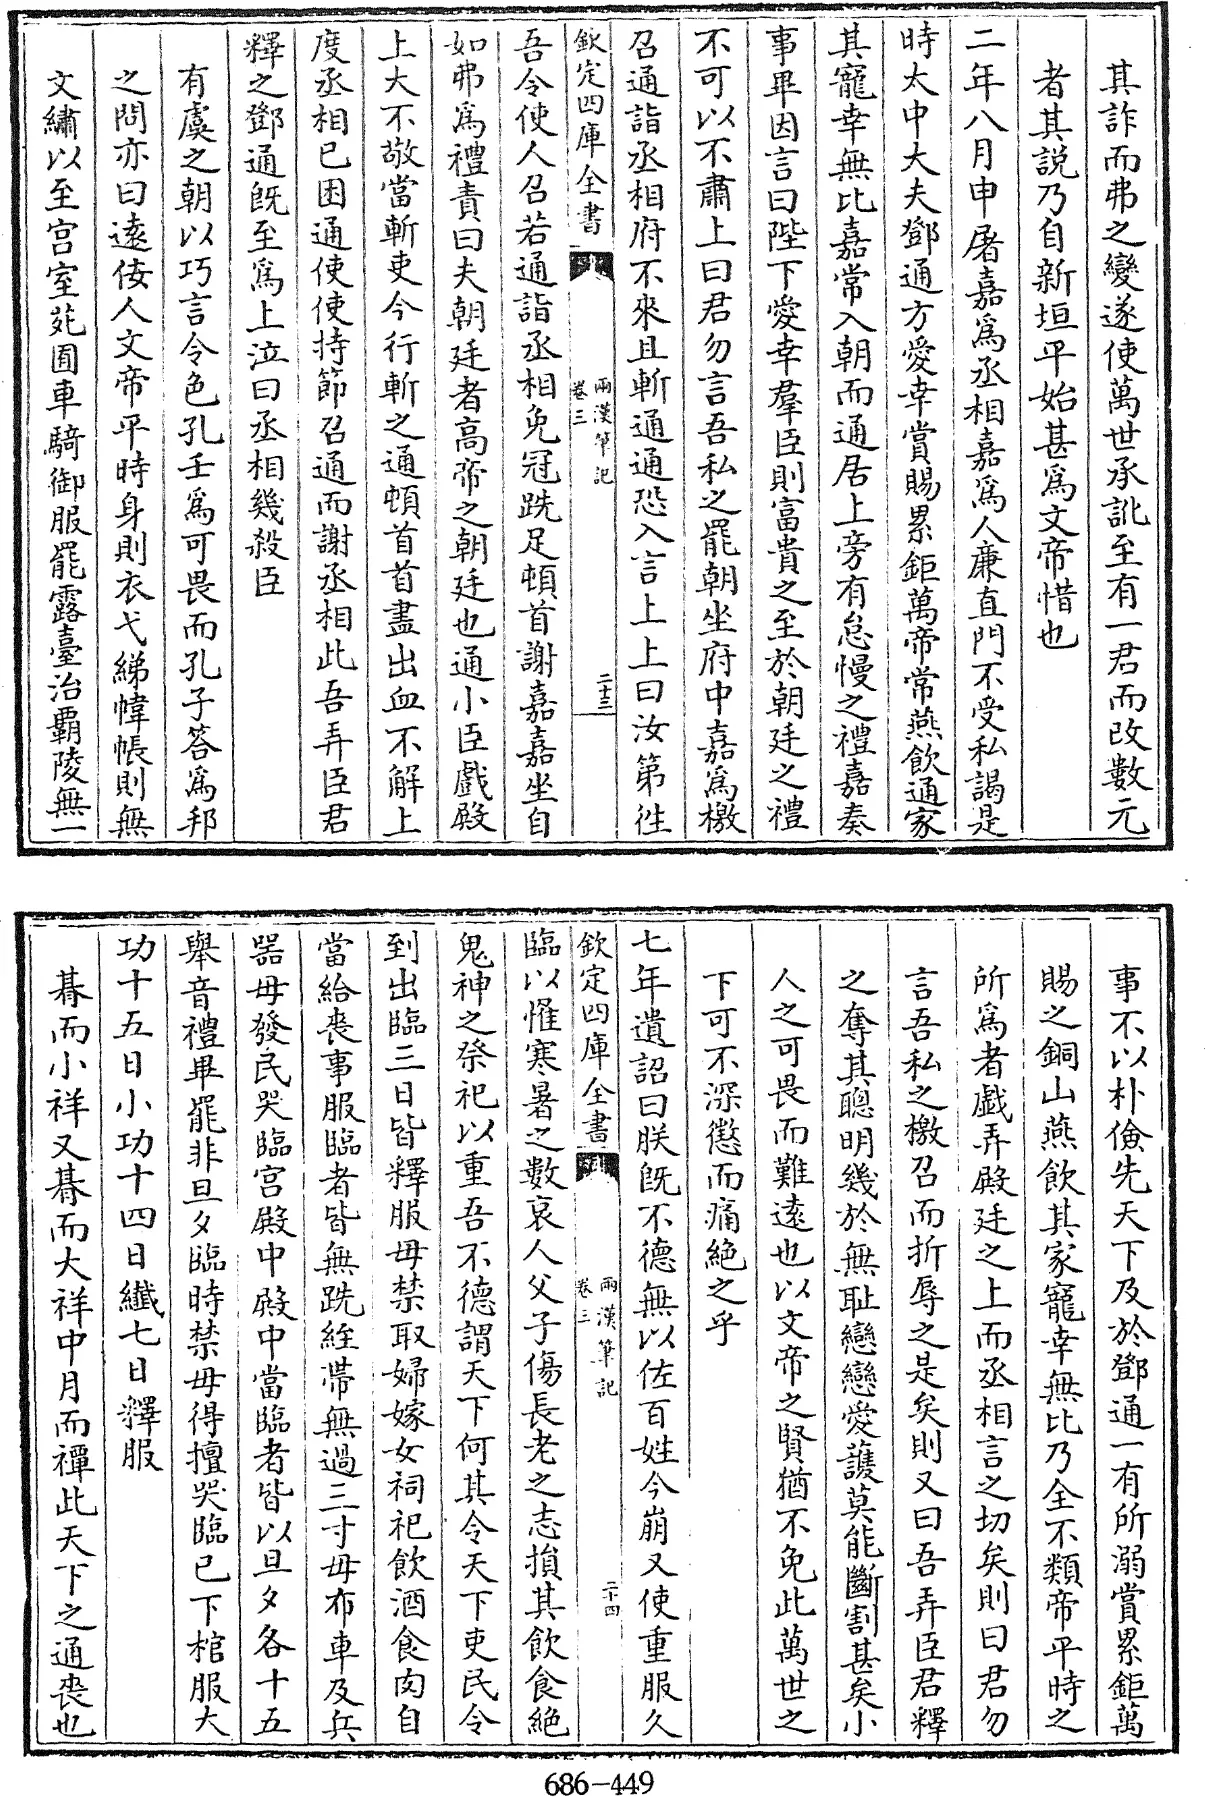 其詐而弗之變遂使萬世承訛至有一君而改數元
者其説乃自新垣平始甚為文帝惜也
二年八月申屠嘉為丞相嘉為人廉直門不受私謁是
時太中大夫鄧通方愛幸賞賜累鉅萬帝常燕飲通家
其寵幸無比嘉常入朝而通居上旁有怠慢之禮嘉奏
事畢因言曰陛下愛幸羣臣則富貴之至於朝廷之禮
不可以不肅上曰君勿言吾私之罷朝坐府中嘉為檄
召通詣丞相府不來且斬通通恐入言上上曰汝第徃
欽定四庫全書
兩漢筆記
卷三
二十三
吾令使人召若通詣丞相免冠跣足頓首謝嘉嘉坐自
如弗為禮責曰夫朝廷者高帝之朝廷也通小臣戲殿
上大不敬當斬吏今行斬之通頓首首盡出血不解上
度丞相已困通使使持節召通而謝丞相此吾弄臣君
釋之鄧通既至為上泣曰丞相幾殺臣
有虞之朝以巧言令色孔壬為可畏而孔子答為邦
之問亦曰逺佞人文帝平時身則衣弋綈幃帳則無
文繡以至宫室苑囿車騎御服罷露臺治覇陵無一
事不以朴儉先天下及於鄧通一有所溺賞累鉅萬
賜之銅山燕飲其家寵幸無比乃全不類帝平時之
所為者戲弄殿廷之上而丞相言之切矣則曰君勿
言吾私之檄召而折辱之是矣則又曰吾弄臣君釋
之奪其聰明幾於無耻戀戀愛護莫能斷割甚矣小
人之可畏而難逺也以文帝之賢猶不免此萬世之
下可不深懲而痛絶之乎
七年遺詔曰朕既不德無以佐百姓今崩又使重服久
欽定四庫全書
兩漢筆記
卷三
二十四
臨以惟寒暑之數哀人父子傷長老之志損其飲食絶
鬼神之祭祀以重吾不德謂天下何其令天下吏民令
到出臨三日皆釋服毋禁取婦嫁女祠祀飲酒食肉自
當給喪事服臨者皆無跣絰帶無過三寸毋布車及兵
器毋發民哭臨宫殿中殿中當臨者皆以旦夕各十五
舉音禮畢罷非旦夕臨時禁毋得擅哭臨已下棺服大
功十五日小功十四日纎七日釋服
朞而小祥又朞而大祥中月而禫此天下之通喪也
686-449